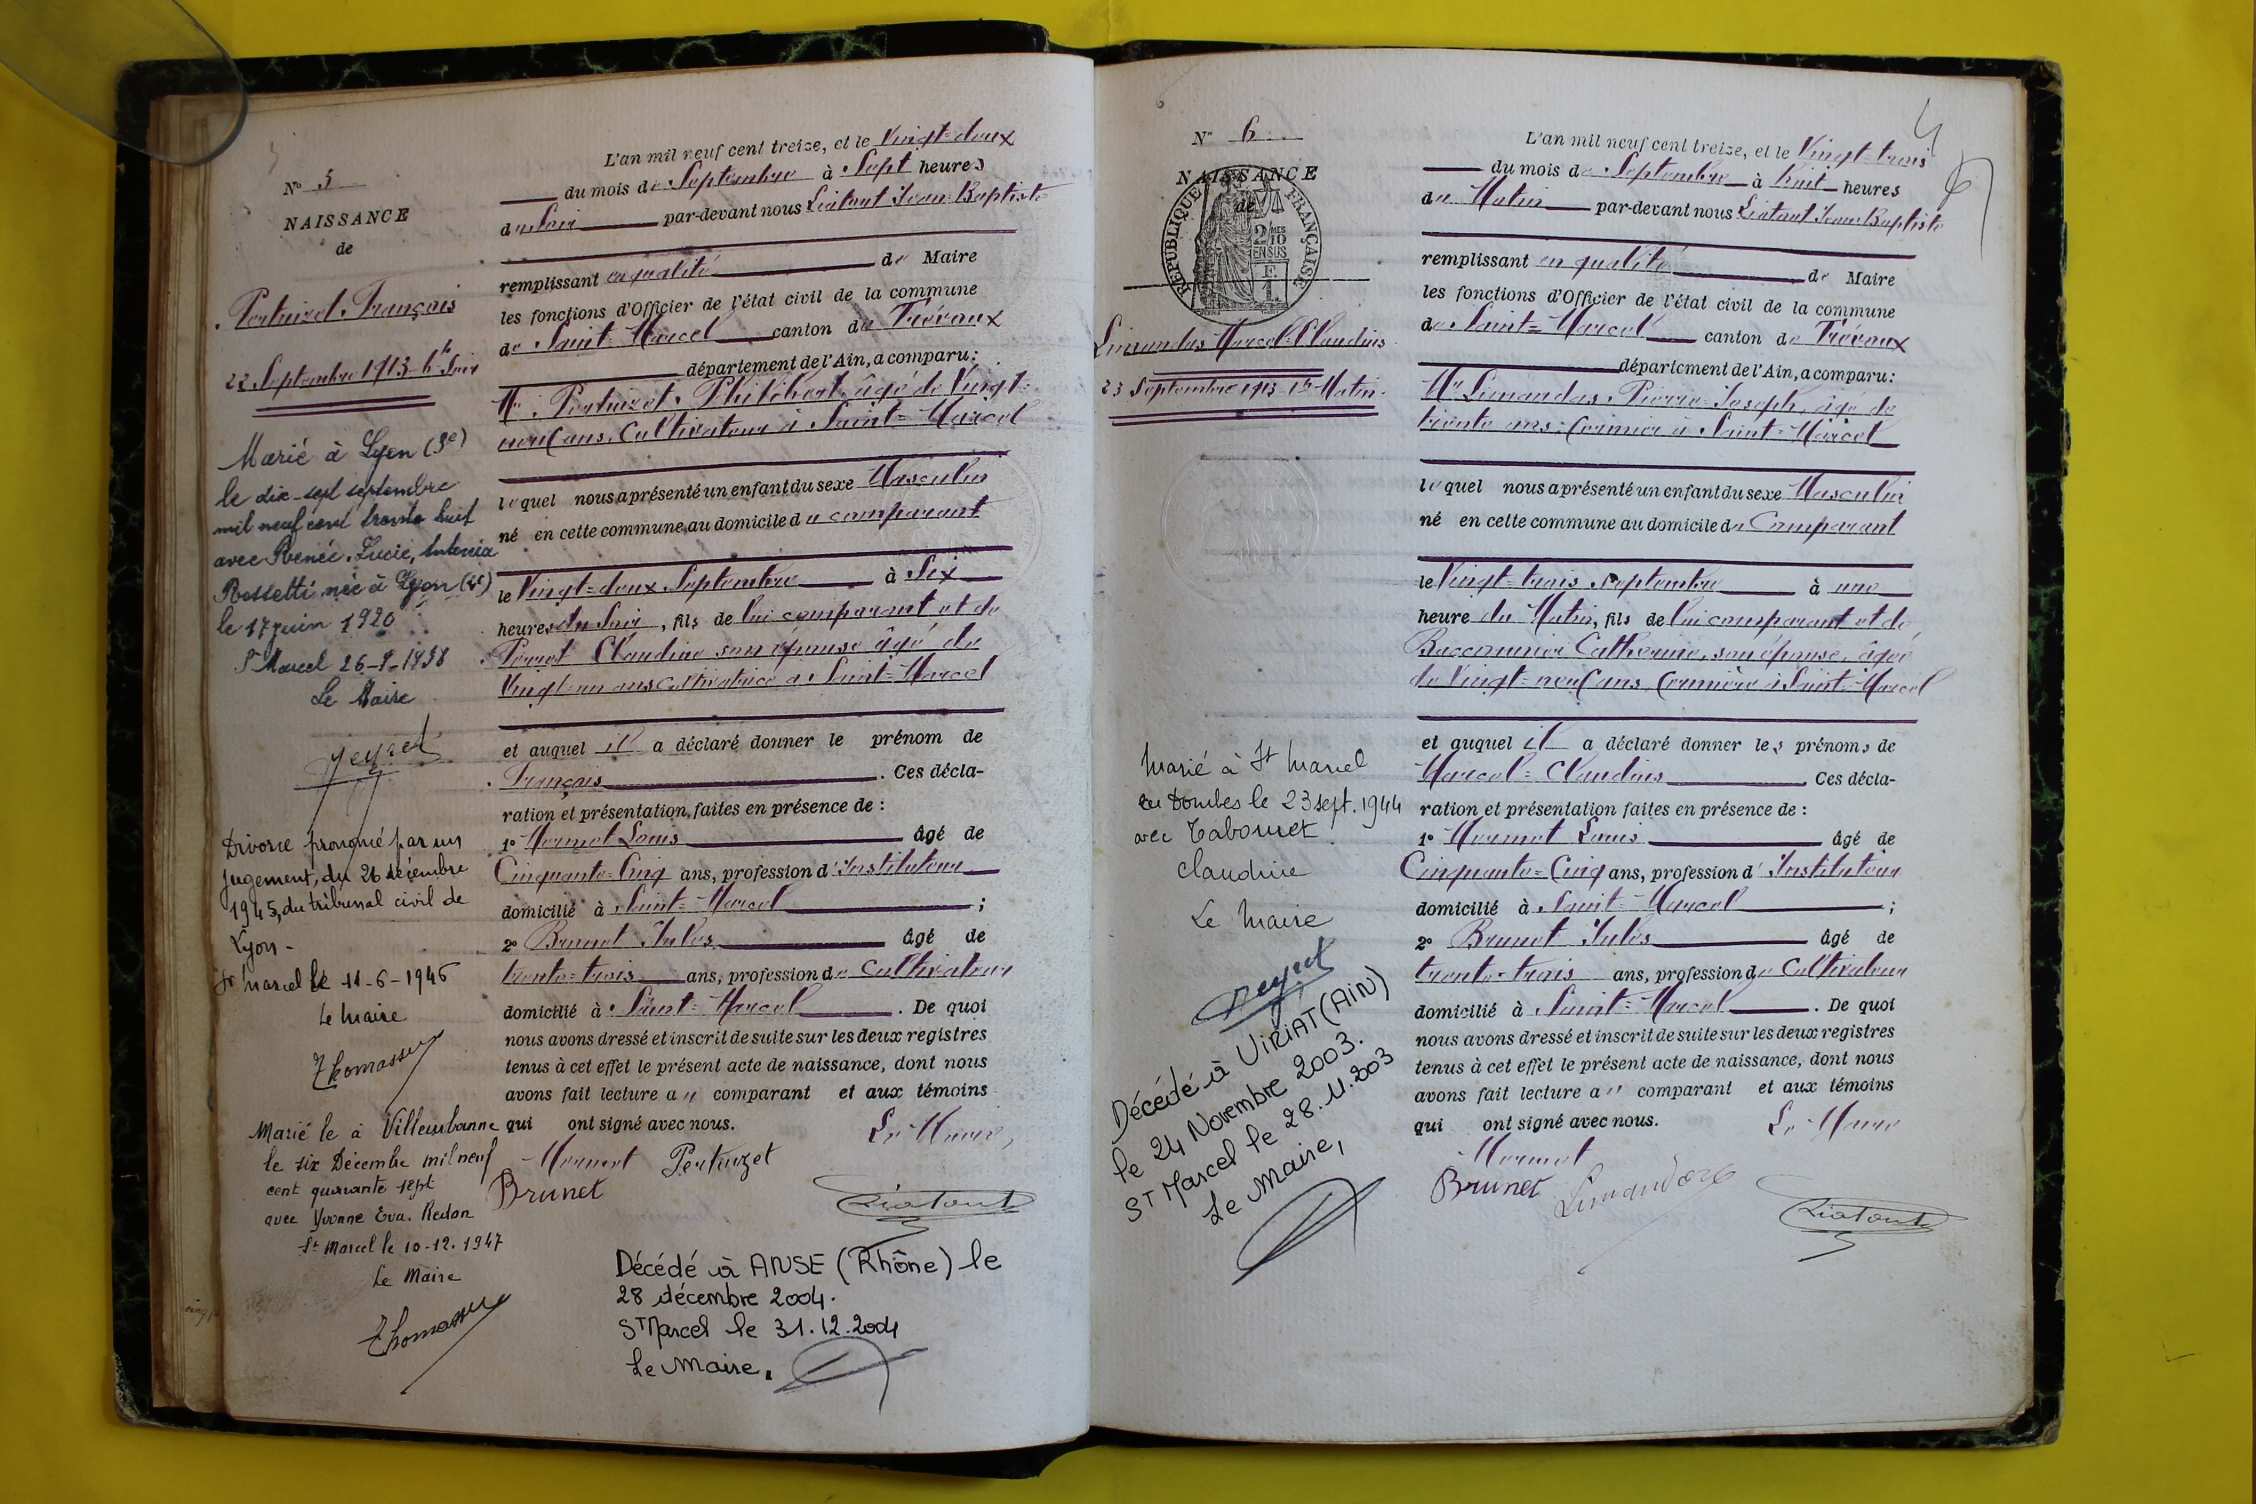 N° 5
NAISSANCE
de
Pertuizet François
22 Septembre 1913 6h Soir
Marié à Lyon (3e)
le dix-sept septembre
mil neuf cent trente huit
avec Renée, Lucie, Antonia
Rossetti née à Lyon
le 17 juin 1920
St Marcel 26-9-1938
Le Maire
Divorce prononcé par un
jugement, du 26 décembre
1945, du tribunal civil de
Lyon -
St Marcel le 11-6-1946
Le Maire
Thomasset
Marié le à Villeurbanne
le six Décembre mil neuf
cent quarante sept
avec Yvonne Eva. Redon
St Marcel le 10-12-1947
Le Maire
Thomasset
L'an mil neuf cent treize, et le Vingt-deux
du mois de Septembre à Sept heures
du Soir par-devant nous Liatout Jean-Baptiste
remplissant en qualité de Maire
les fonctions d'Officier de l'état civil de la commune
de Saint-Marcel canton de Trévoux
département de l'Ain, a comparu:
Mr Pertuizet Philibert, âgé de Vingt-
neuf ans, Cultivateur à Saint-Marcel
lequel nous a présenté un enfant du sexe Masculin
né en cette commune, au domicile du comparant
le Vingt-deux Septembre à Six
heures du Soir, fils de lui comparant et de
Perret Claudine son épouse âgé de
Vingt-un ans Cultivatrice à Saint-Marcel
et auquel il a déclaré donner le prénom de
François. Ces décla-
ration et présentation, faites en présence de :
1° Mermet Louis âgé de
Cinquante-Cinq ans, profession d'Instituteur
domicilié à Saint-Marcel ;
2° Brunet Jules âgé de
trente-trois ans, profession de Cultivateur
domicilié à Saint-Marcel. De quoi
nous avons dressé et inscrit de suite sur les deux registres
tenus à cet effet le présent acte de naissance, dont nous
avons fait lecture au comparant et aux témoins
qui ont signé avec nous. Le Maire,
Mermet Pertuizet
Brunet Liatout
Décédé à ANSE (Rhône) le
28 décembre 2004.
St Marcel le 31.12.2004
Le Maire,
N° 6
NAISSANCE
de
RÉPUBLIQUE FRANÇAISE
2/10 MES
EN SUS
F.
1.
Limandas Marcel-Claudius
23 Septembre 1913 1h Matin
Marié à St Marcel
en Dombes le 23 sept. 1944
avec Tabouret
Claudine
Le Maire
Décédé à VIRIAT (AIN)
le 24 Novembre 2003.
ST Marcel le 28.11.203
Le Maire,
L'an mil neuf cent treize, et le Vingt-trois
du mois de Septembre à huit heures
du Matin par-devant nous Liatout Jean-Baptiste
remplissant en qualité de Maire
les fonctions d'Officier de l'état civil de la commune
de Saint-Marcel canton de Trévoux
département de l'Ain, a comparu:
Mr Limandas Pierre-Joseph, âgé de
trente ans, Fermier à Saint-Marcel
lequel nous a présenté un enfant du sexe Masculin
né en cette commune au domicile du Comparant
le Vingt-trois Septembre à une
heure du Matin, fils de lui comparant et de
Catherine, son épouse, âgée
de Vingt-neuf ans, Fermière à Saint-Marcel
et auquel il a déclaré donner les prénoms de
Marcel-Claudius Ces décla-
ration et présentation faites en présence de :
1° Mermet Louis âgé de
Cinquante-Cinq ans, profession d'Instituteur
domicilié à Saint-Marcel ;
2° Brunet Jules âgé de
trente-trois ans, profession de Cultivateur
domicilié à Saint-Marcel. De quoi
nous avons dressé et inscrit de suite sur les deux registres
tenus à cet effet le présent acte de naissance, dont nous
avons fait lecture au comparant et aux témoins
qui ont signé avec nous. Le Maire
Mermet
Brunet Limandas Liatout